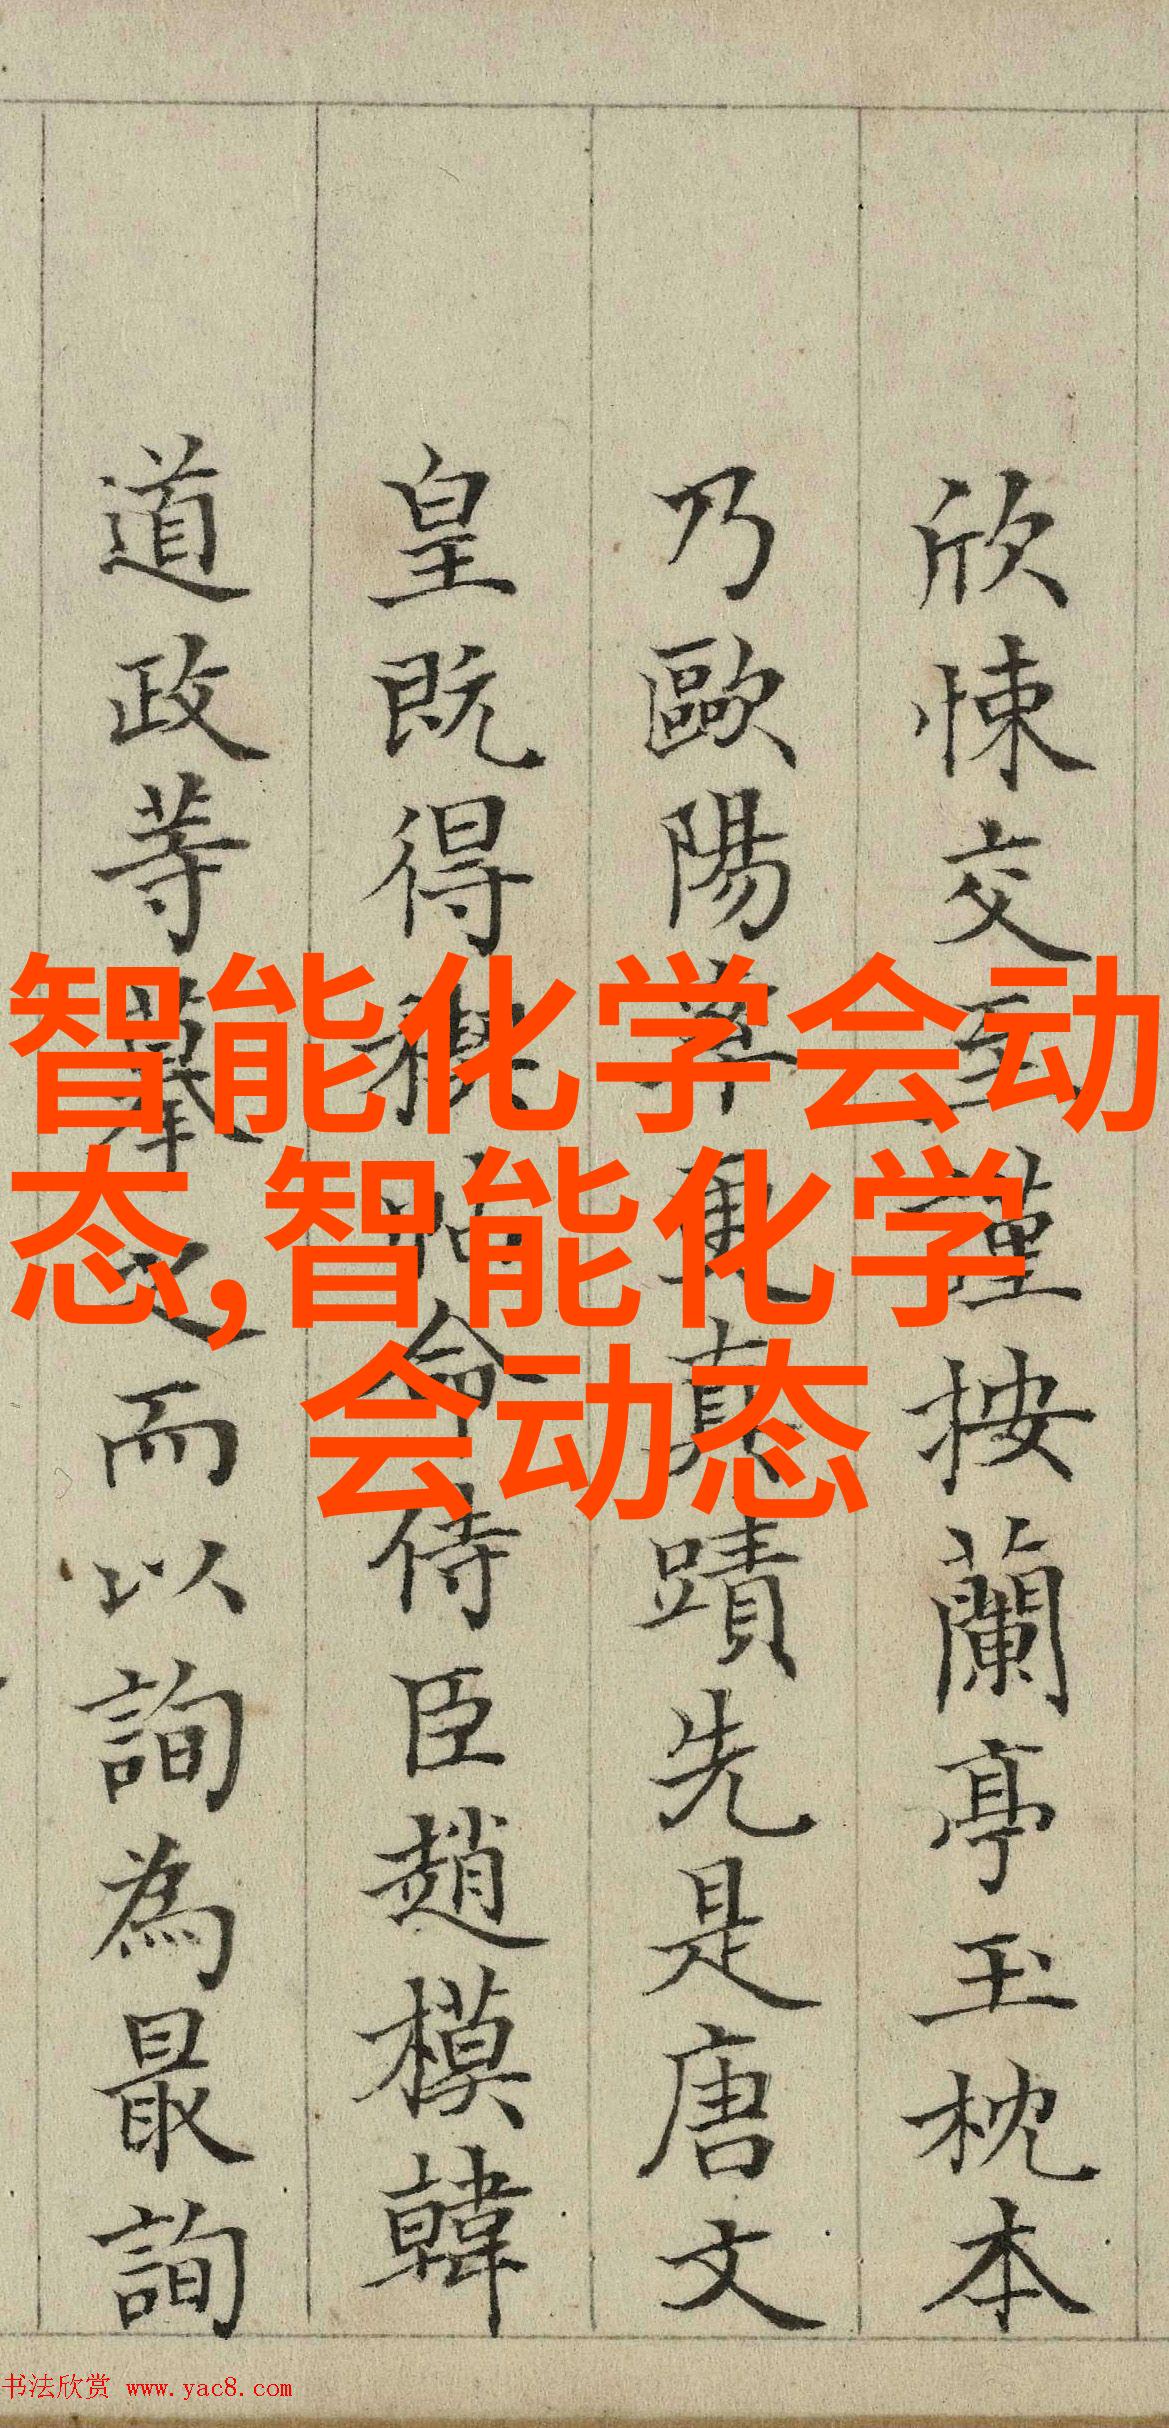 欣悚交至謹按蘭亭玉枕本
乃歐陽率更真蹟先是唐文
皇既得禊帖命侍臣趙模韓
道政等摹之而以詢為最詢
智能化学会动
态,智能化学
会动态
书法欣赏 www.yac8.com